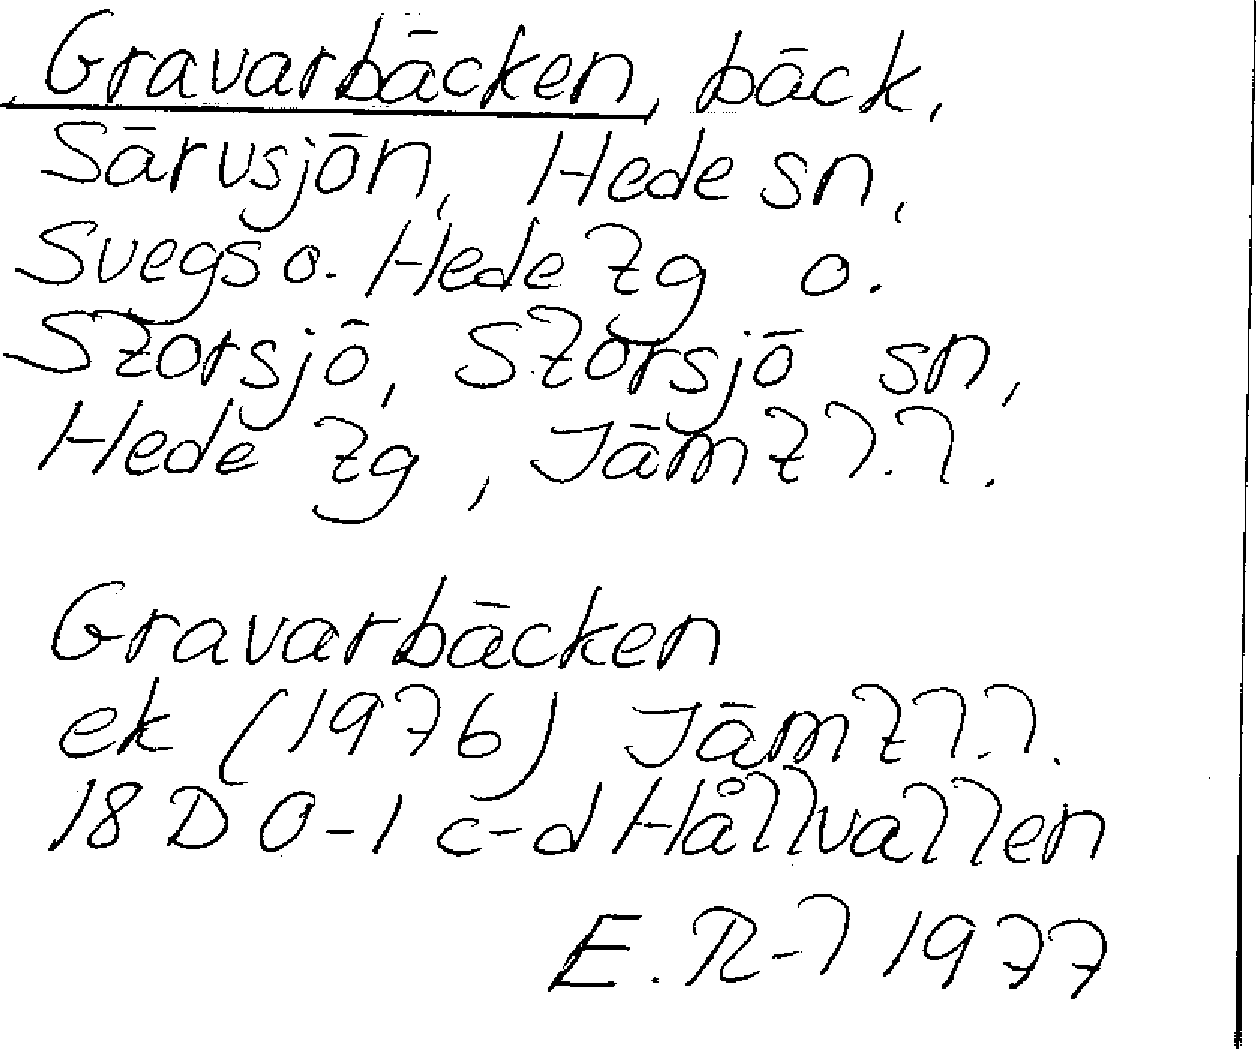 Gravarbäcken, bäck,
Särvsjön, Hede sn,
Svegs o. Hede tg o.
Storsjö, Storsjö sn,
Hede tg, Jämtl.l.
Gravarbäcken
ek (1976) Jämtl.l.
18 D 0-1 c-d Hållvallen
E. R-l 1977